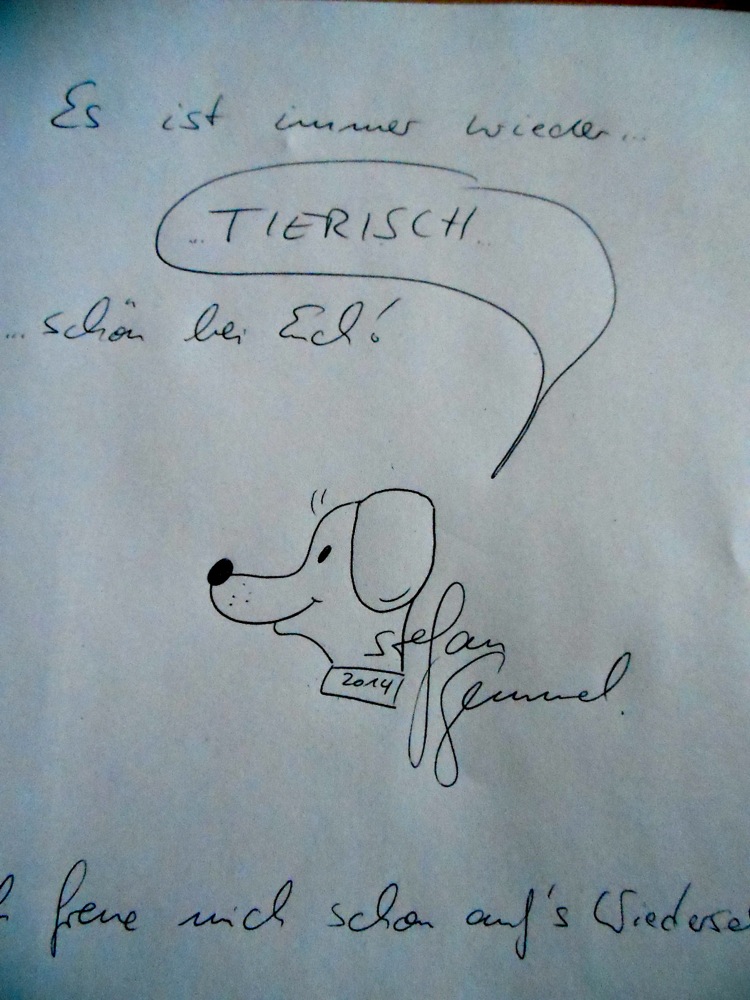 Es ist immer wieder...
...TIERISCH...
...schön bei Euch!
stefan
2014
Gemmel.
h freue mich schon auf's Wiederse